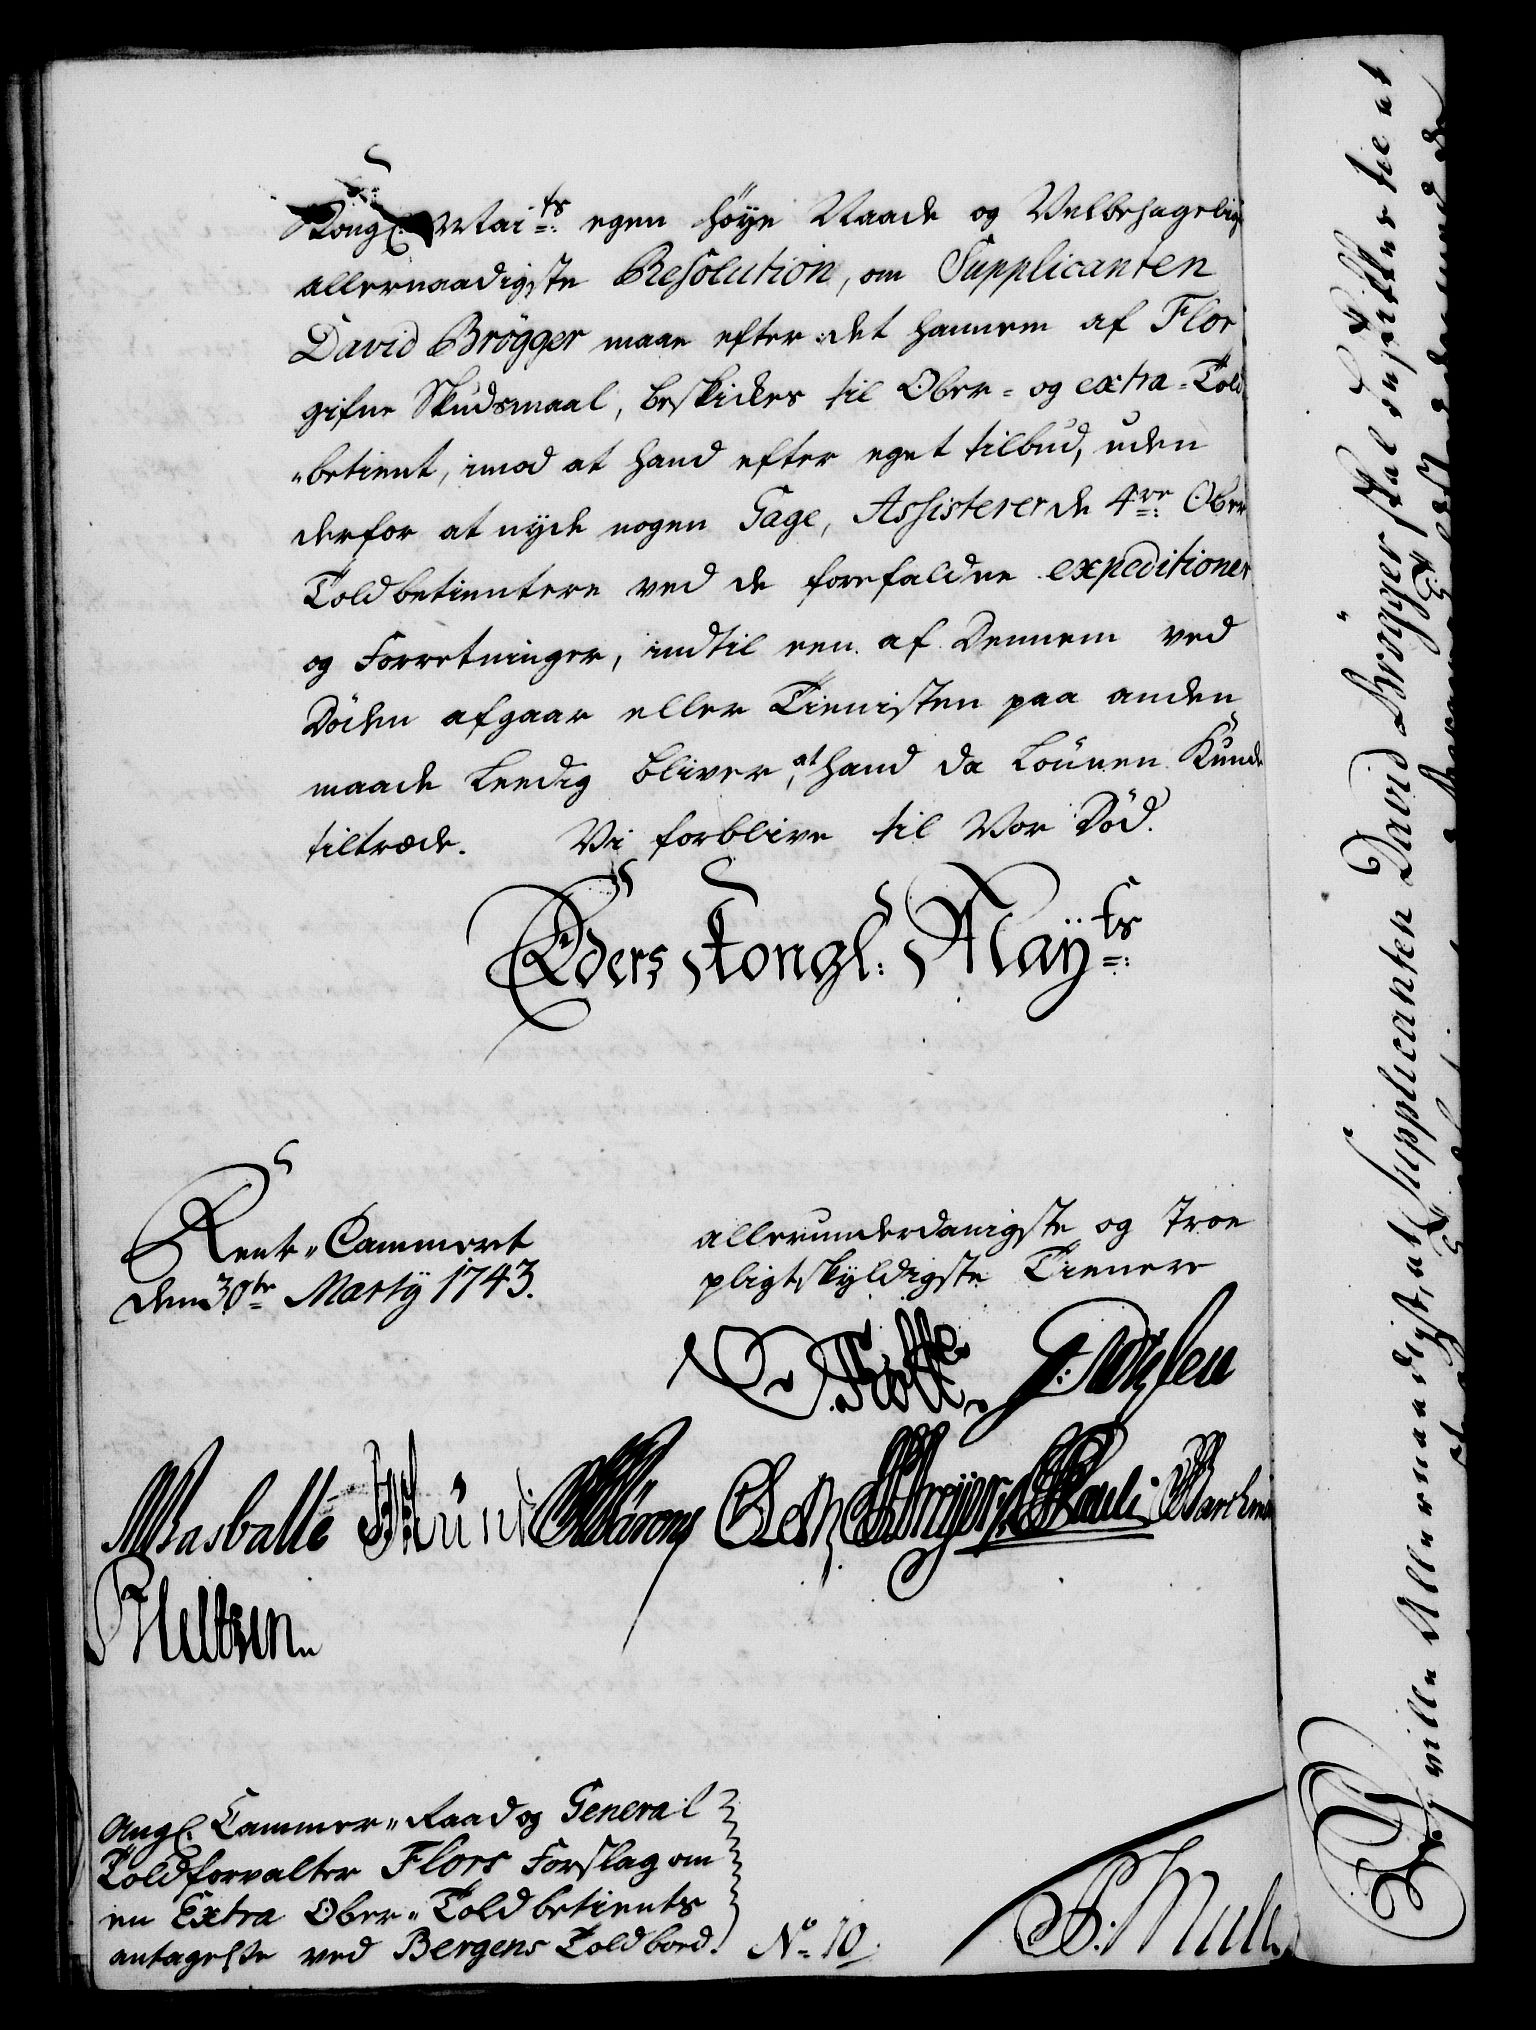 Kongl. Mai:ts egen høye Naade og Velbehagelig
allernaadigste Resolution, om Supplicanten
David Brøgger maae efter det hannem af Flor
gifne Skudsmaal, beskickes til Ober- og extra-Told
„betient, imod at hand efter eget tilbud, uden
derfor at nyde nogen Gage, Assisterer de 4re Ober
Toldbetientere ved de forefaldne expeditioner
og Forretninger, indtil een af Dennem ved
Døden afgaar eller Tienisten paa anden
maade Leedig bliver, at hand da Lønnen Kunde
tiltræde. Vi forblive til Vor Død.
Eders Kongl: Maÿ:ts
Rente„Cammeret
den 30te Martÿ 1743.
allerunderdanigste og troe
pligtskyldigste Tienere
Masballe
P Heltzen
Angl. Cammer„Raad og General
Toldforvalter Flors Forslag om
en Extra Ober„Toldbetients
antagelse ved Bergens Toldboed.
No. 10.
Vj ville Allernaadigst, at Supplicanten David Brøgger skal